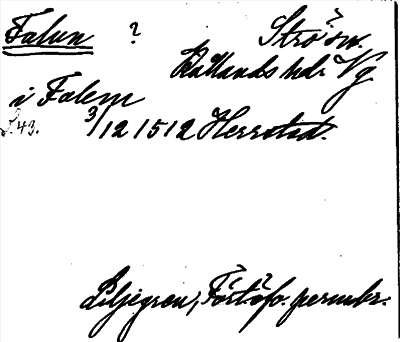 Falun ? Strö sn.
Vallands hd. Vg.
i Falem
S. 43. 3/12 1512 Herrstad.
Liljegren, Förtöfn. permbr.